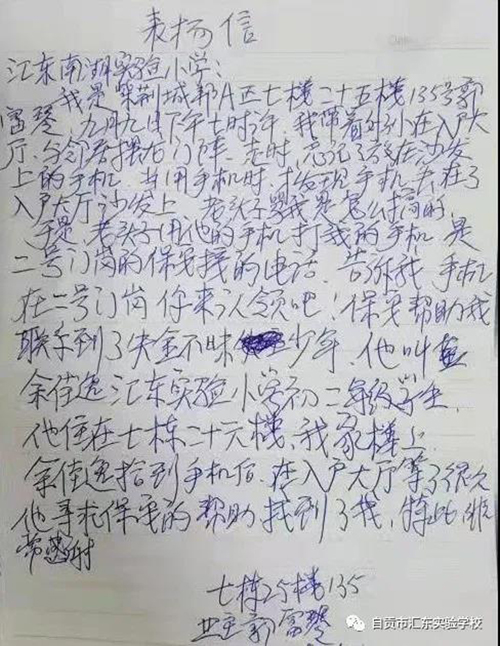 表扬信
江东南湖实验小学：
我是紫荆城邦A区七栋二十五楼135号郭
富琴，九月九日下午七时许，我带着外孙在入户大
厅，与邻居摆龙门阵，走时，忘记了放在沙发
上的手机，其用手机时，才发现手机丢在了
入户大厅沙发上，老头子骂我是怎么搞的，
于是，老头子用他的手机打我的手机，是
二号门岗的保安接的电话，告诉我，手机
在二号门岗你来认领吧！保安帮助我
联系到了失金不昧少年，他叫
余佳逸江东实验小学初二年级学生，
他住在七栋二十六楼，我家楼上，
余佳逸拾到手机后，在入户大厅等了很久
他寻求保安的帮助找到了我，特此非
常感谢
七栋25楼135
业主郭富琴
自贡市汇东实验学校